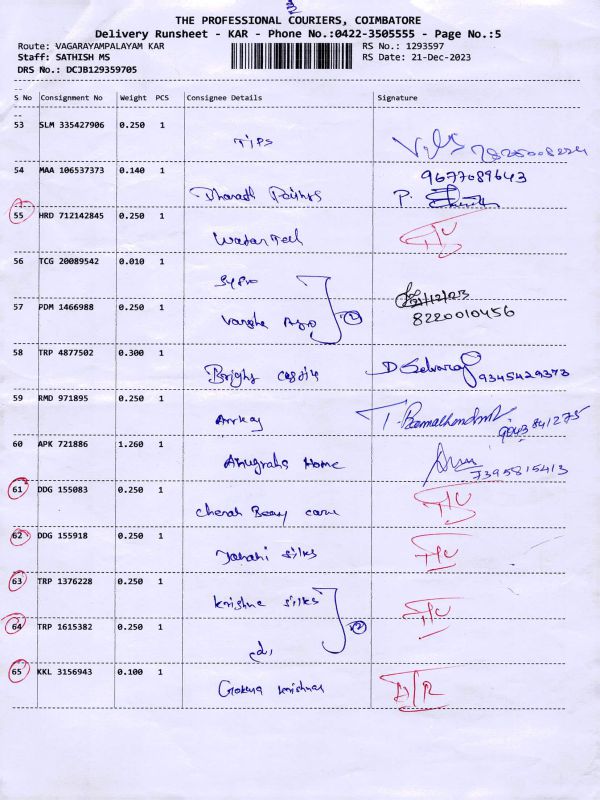 THE PROFESSIONAL COURIERS, COIMBATORE
Delivery Runsheet - KAR - Phone No.:0422-3505555 - Page No.:5
Route: VAGARAYAMPALAYAM KAR RS No.: 1293597
Staff: SATHISH MS RS Date: 21-Dec-2023
DRS No.: DCJB129359705
S No Consignment No Weight PCS Consignee Details Signature
53 SLM 335427906 0.250 1
TIPS
54 MAA 106537373 0.140 1 9677089643
Bharath P.
55 HRD 712142845 0.250 1
Water Tech
56 TCG 20089542 0.010 1
57 PDM 1466988 0.250 1 21/12/23
Varsha Agro 2 8220010456
58 TRP 4877502 0.300 1
Bright D Selvaraj 9345429373
59 RMD 971895 0.250 1
9043841275
60 APK 721886 1.260 1
Anugraha Home 7395815413
61 DDG 155083 0.250 1
62 DDG 155918 0.250 1
silks
63 TRP 1376228 0.250 1
Krishna silks
64 TRP 1615382 0.250 1 2
65 KKL 3156943 0.100 1
Krishnan